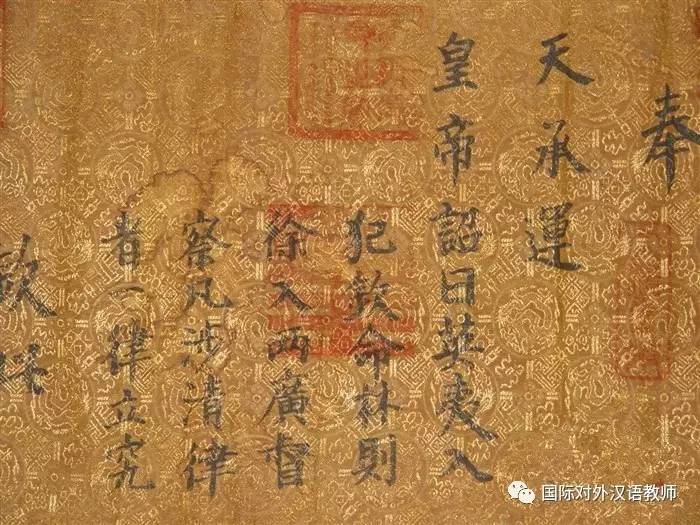 奉
天承運
皇帝詔曰英夷入
犯欽命林則
徐入两廣督
察凡涉清律
者一律立究
欽
国际对外汉语教师